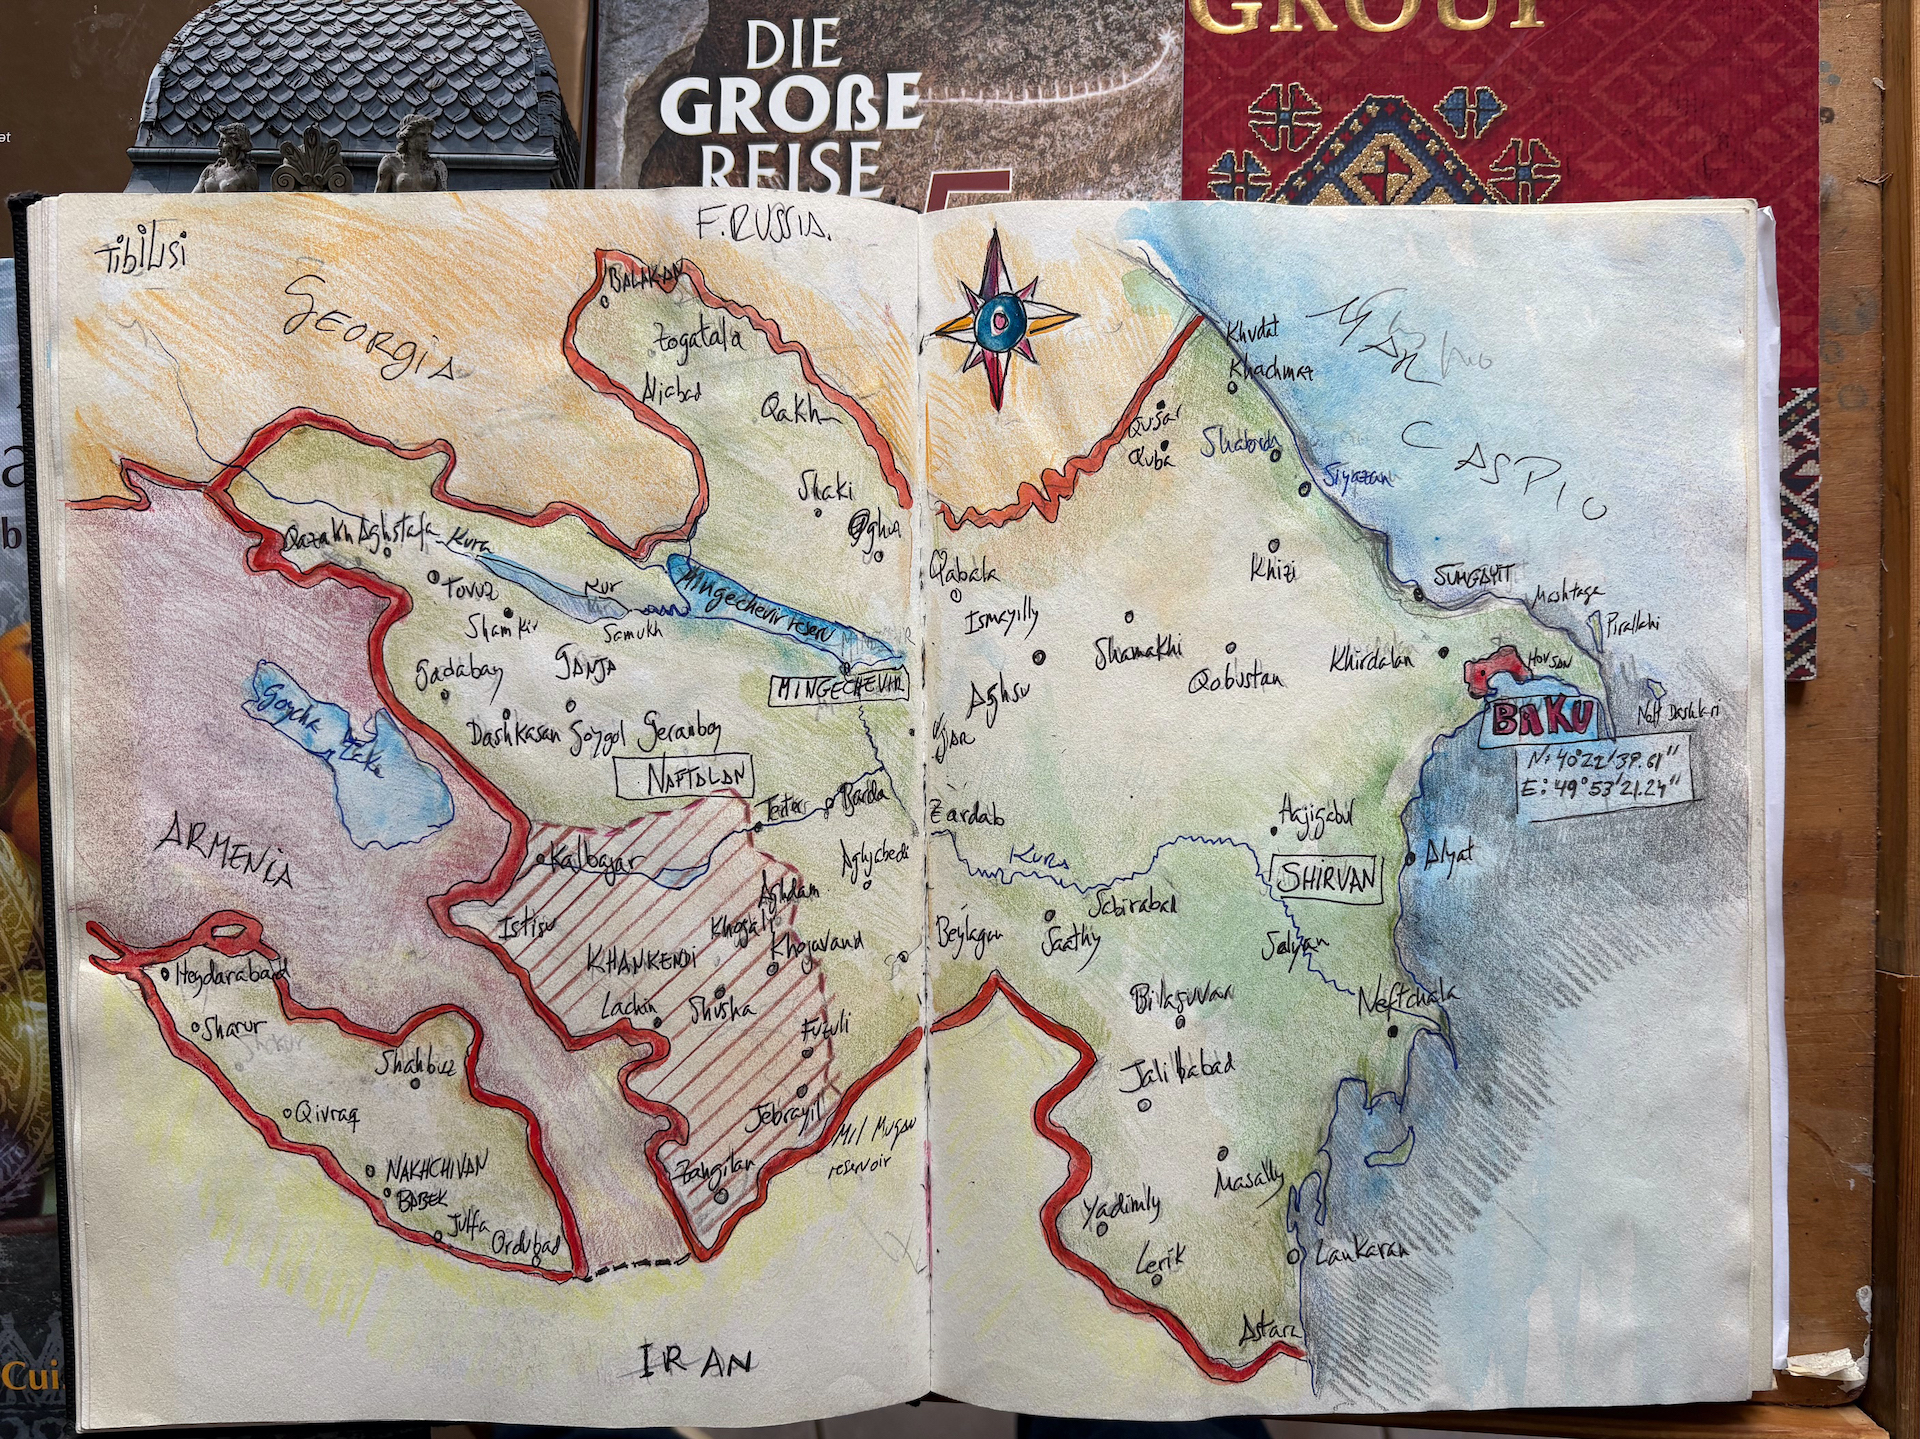 DIE
GROßE
REISE
5
GROUP
Tibilisi
GEORGIA
F. RUSSIA.
BALAKAN
Zogatala
Aliabad
Qakh
Shaki
Oghuz
Qazakh
Aghstafa
Kura
Tovuz
Shamkir
Kur
Samukh
Mingechevir reserv
MINGECHEVIR
Gadabay
GANJA
Dashkasan
Goygol
Geranboy
NAFTALAN
Goycha
Lake
ARMENIA
Terter
Barda
Kalbajar
Aghjabedi
Aghdam
Istisu
Khojaly
KHANKENDI
Khojavand
Lachin
Shusha
Fuzuli
Jebrayil
Zangilan
Mil Mugan
reservoir
Heydarabad
Sharur
Sharur
Shahbuz
Qivraq
NAKHCHIVAN
BABEK
Julfa
Ordubad
IRAN
Khudat
Khachmaz
Qusar
Quba
Shabran
Siyazan
MAR
CASPIO
Qabala
Ismayilly
Khizi
SUMGAYIT
Mashtaga
Pirallahi
Shamakhi
Qobustan
Khirdalan
HOVSAN
Aghsu
UJAR
BAKU
Neft Dashlari
N: 40°22'39.61"
E: 49°53'21.24"
Zardab
Hajigabul
Kura
SHIRVAN
Alyat
Sabirabad
Beylagan
Saathy
Salyan
Bilasuvar
Neftchala
Jalilbabad
Masally
Yadimly
Lerik
Lankaran
Astara
Cui